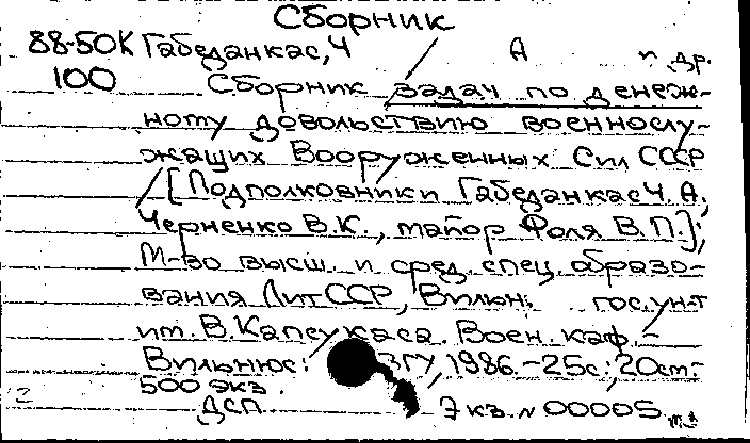 Сборник
88-50К Габеданкас, Ч А и др.
100 Сборник задач по денеж-
ному довольствию военнослу-
жащих Вооруженных Сил СССР
/[Подполковники Габеданкас Ч. А.,
Черненко В.К., майор Фоля В.П.];
М-во высш. и сред. спец. образо-
вания ЛитССР, Вильн. гос. ун-т
им. В. Капсукаса. Воен. каф. -
Вильнюс: ВГУ, 1986. - 25с.; 20см -
500 экз.
2 ДСП Экз. N 00005